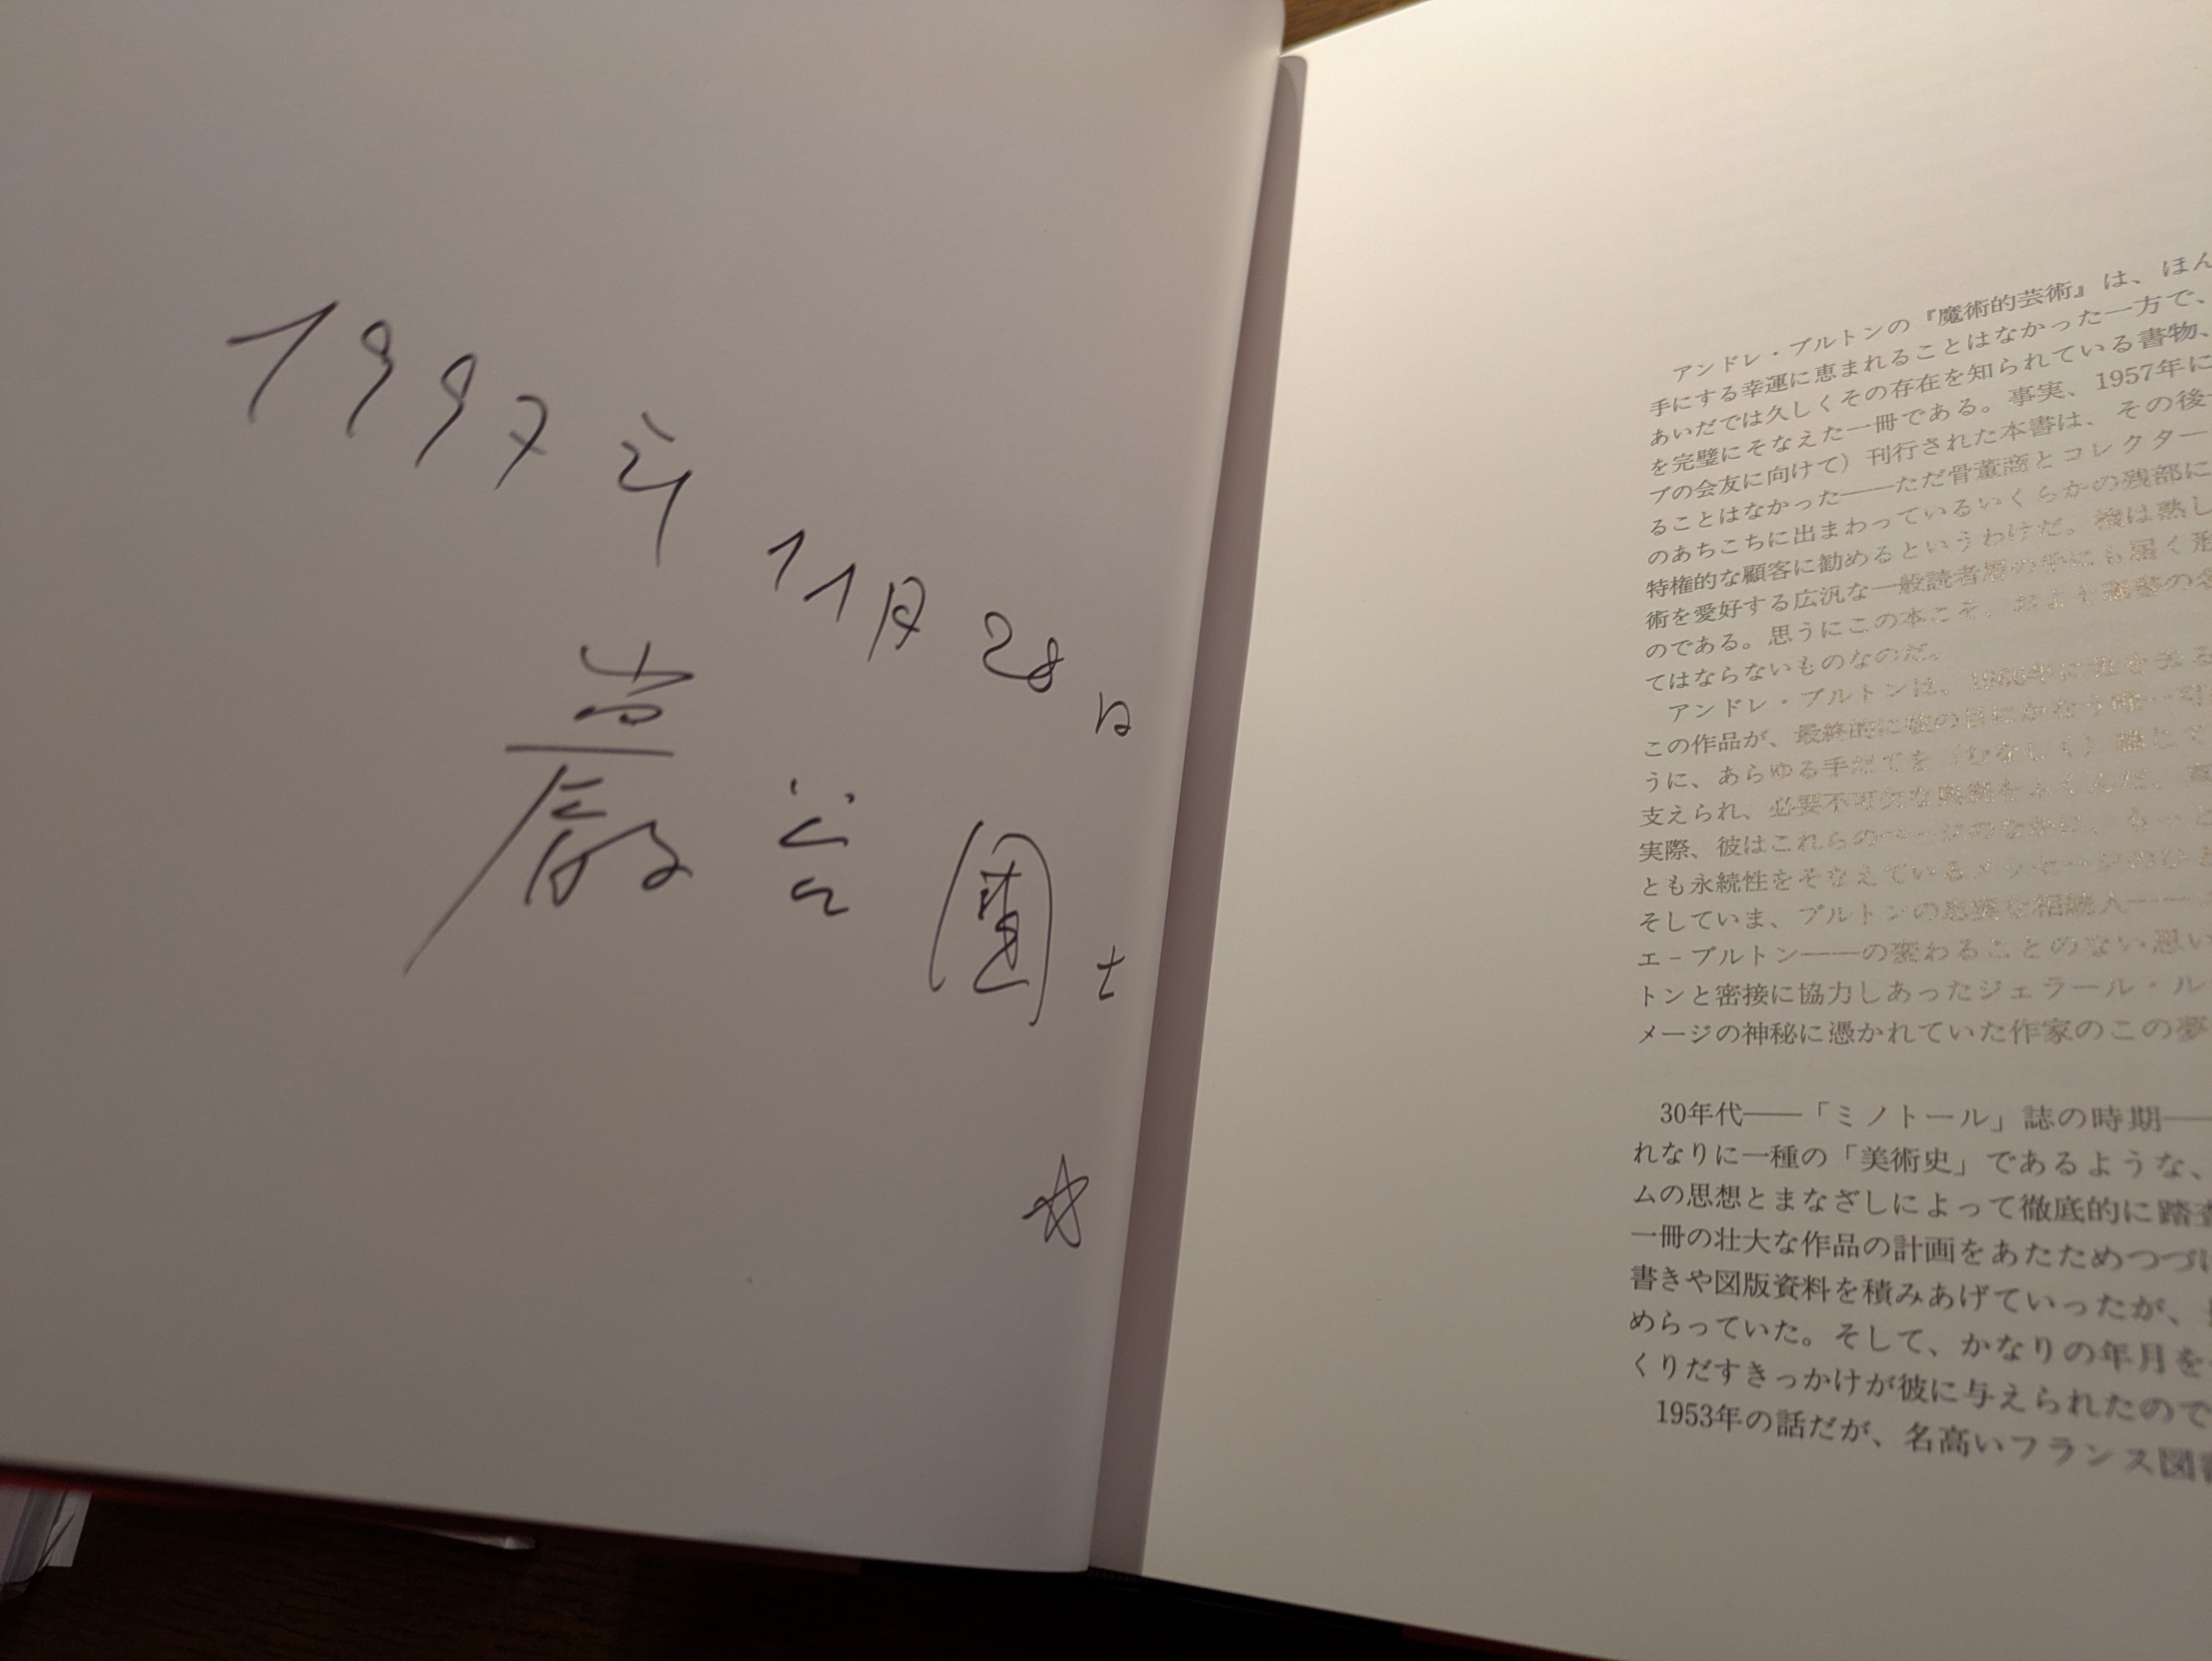 1997年 11月28日
巖谷國士
☆
アンドレ・ブルトンの『魔術的芸術』は、ほん
手にする幸運に恵まれることはなかった一方で、
あいだでは久しくその存在を知られている書物、
を完璧にそなえた一冊である。事実、1957年に
ブの会友に向けて）刊行された本書は、その後
ることはなかった——ただ骨董商とコレクター
のあちこちに出まわっているいくらかの残部に
特権的な顧客に勧めるというわけだ。機は熟し
術を愛好する広汎な一般読者層の手にも届く形
のである。思うにこの本こそ、およそ
てはならないものなのだ。
アンドレ・ブルトンは、1966年に世を去る
この作品が、最終的に彼の目にかなう唯一
うに、あらゆる手だてを（むなしく）講じて
支えられ、必要不可欠な
実際、彼はこれらのページのなかに、もっと
とも永続性をそなえているメッセージのひと
そしていま、ブルトンの忠実な相続人——
エ‐ブルトン——の変わることのない思い
トンと密接に協力しあったジェラール・ル
メージの神秘に憑かれていた作家のこの夢
30年代——「ミノトール」誌の時期——
れなりに一種の「美術史」であるような、
ムの思想とまなざしによって徹底的に踏査
一冊の壮大な作品の計画をあたためつづけ
書きや図版資料を積みあげていったが、
めらっていた。そして、かなりの年月を
くりだすきっかけが彼に与えられたので
1953年の話だが、名高いフランス図書